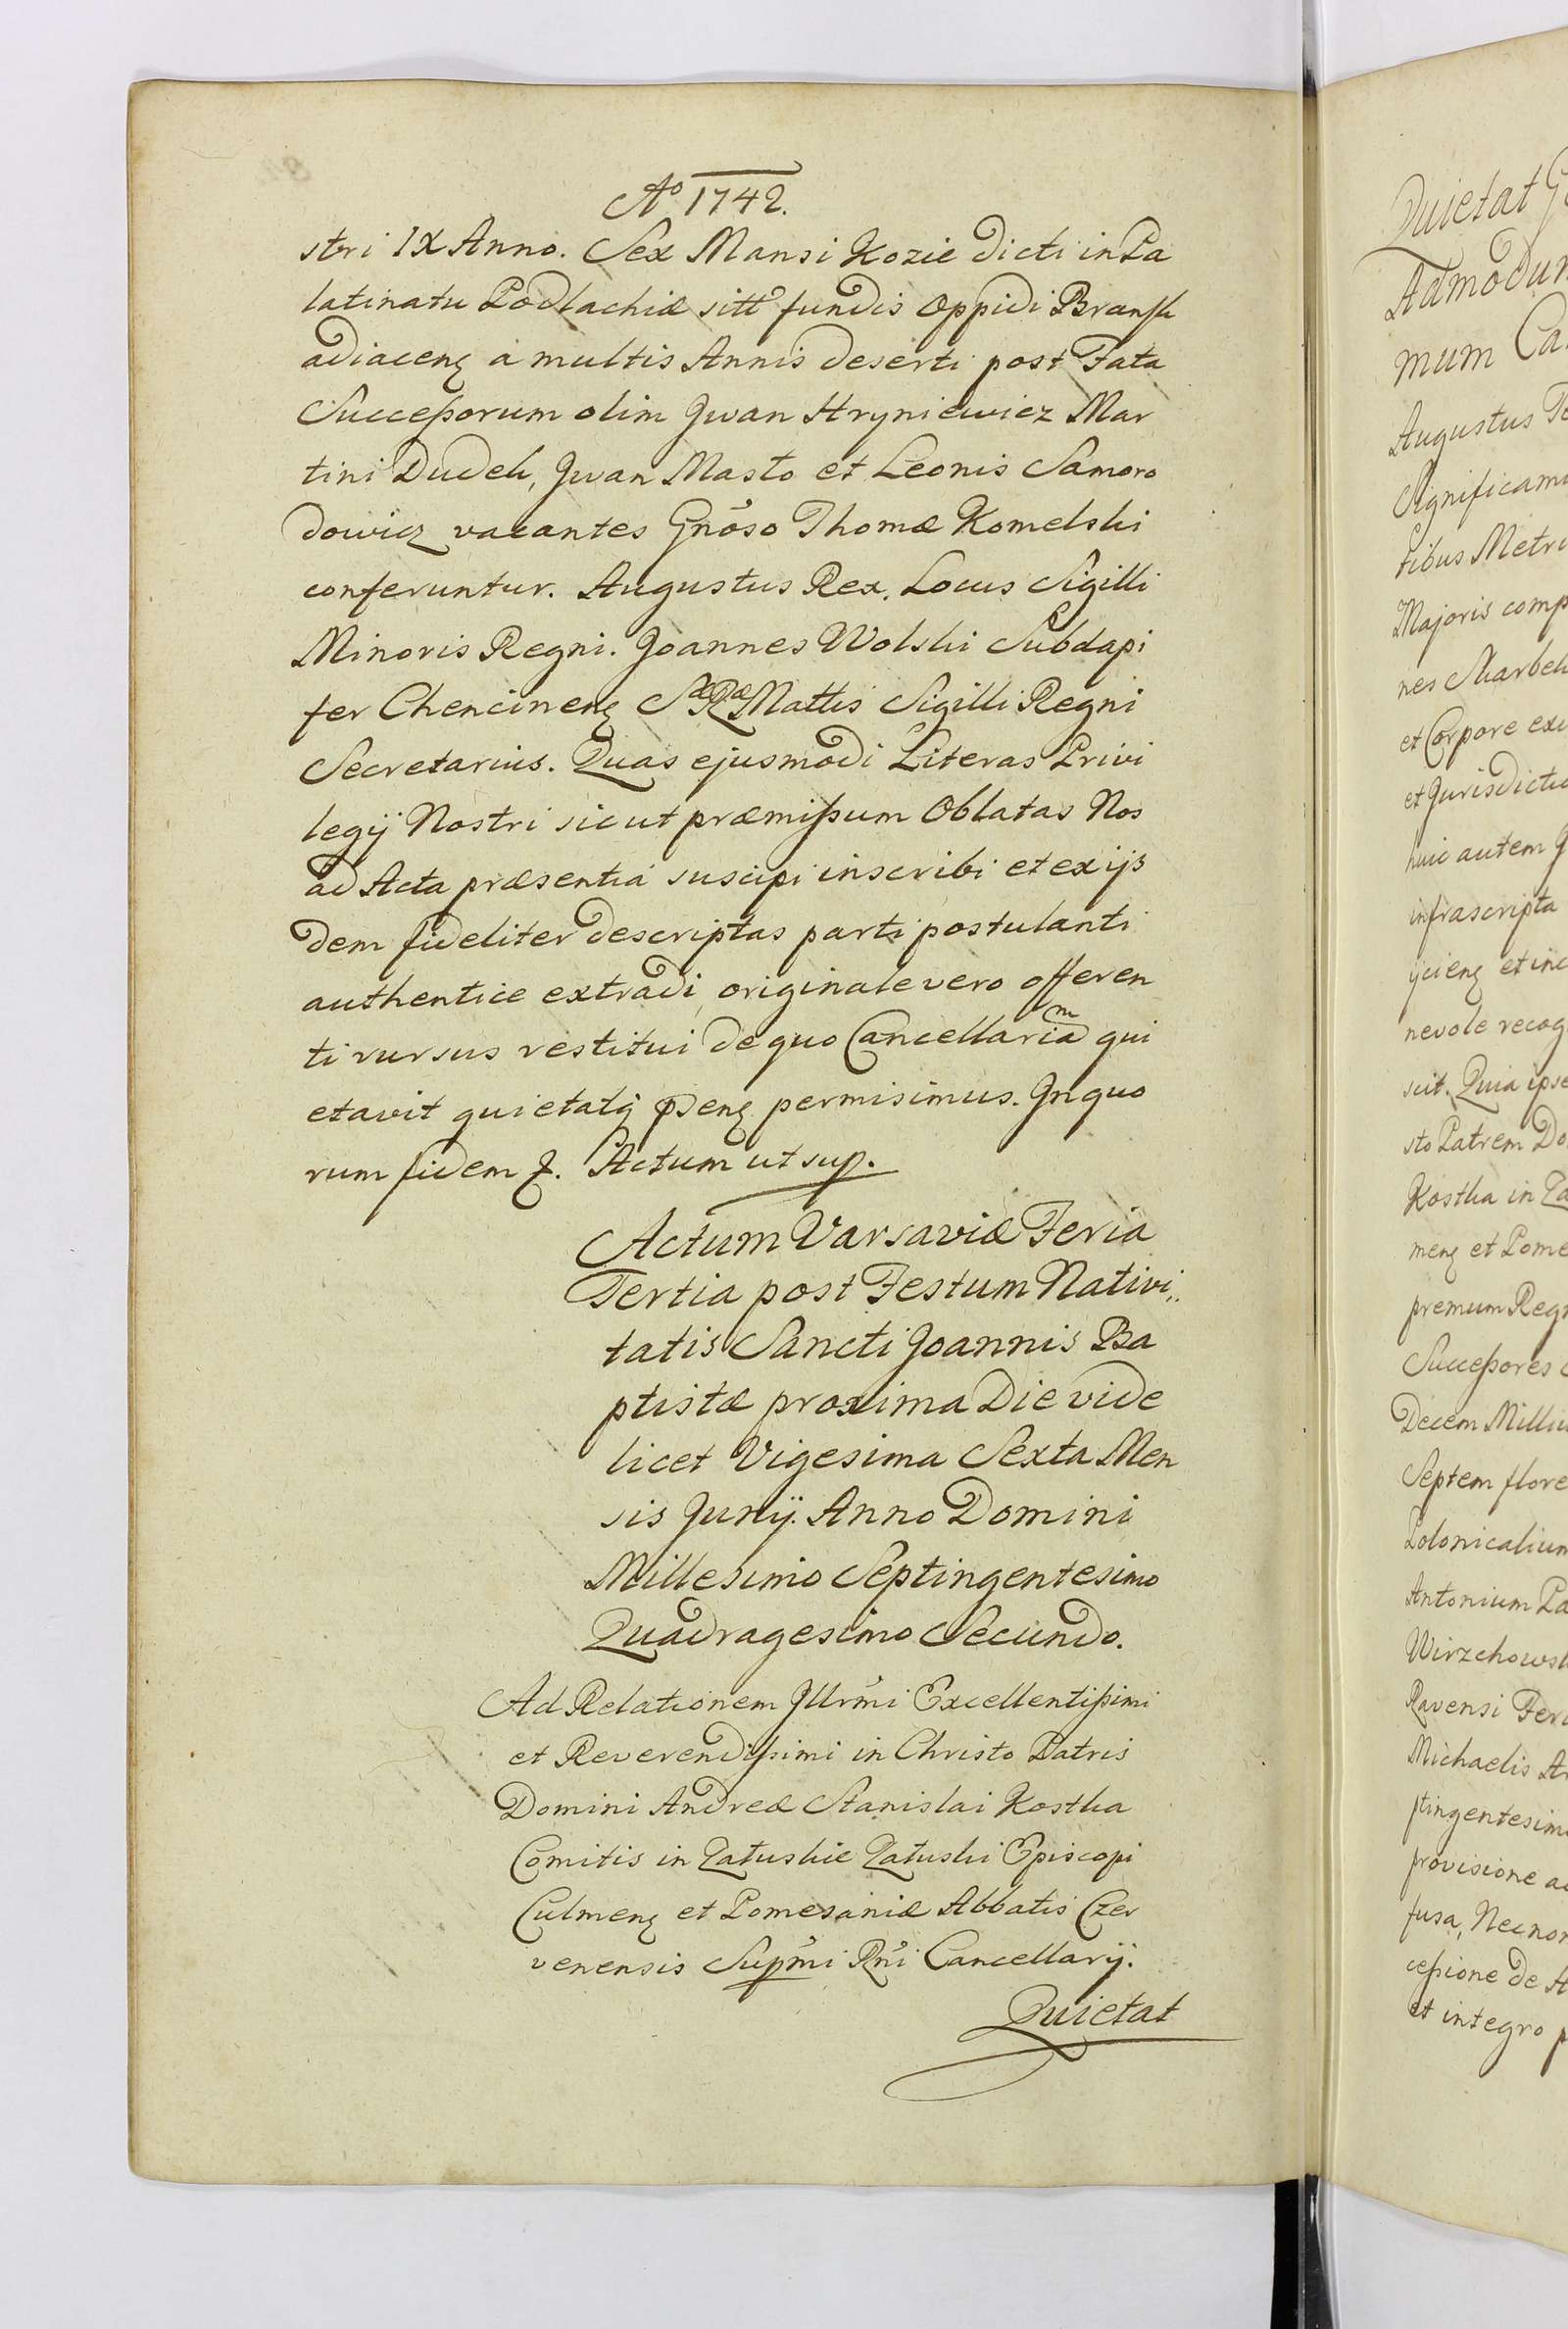 Aº 1742.
stri IX Anno. Sex Mansi Kozie dicti in Pa
latinatu Podlachiæ sitt fundis Oppidi Bransk
adiacenȝ a multis Annis deserti post Fata
Successorum olim Jwan Hryniewicz Mar
tini Dudek, Jwan Masto et Leonis Samoro
dowicz vacantes Gnõso Thomæ Komelski
conferuntur. Augustus Rex. Locus Sigilli
Minoris Regni. Joannes Wolski Subdapi
fer Chencinenȝ SæRæMattis Sigilli Regni
Secretarius. Quas ejusmodi Literas Privi
legij Nostri sicut præmissum Oblatas Nos
ad Acta præsentia suscipi inscribi et ex ijs
dem fideliter descriptas parti postulanti
authentice extradi, originale vero offeren
ti rursus restitui de quo Cancellariam qui
etavit quietatq̃ p̃senȝ permisimus. Jn quo
rum fidem ꝛ. Actum ut sup.
Actum Varsaviæ Feria
Tertia post Festum Nativi„
tatis Sancti Joannis Ba
ptistæ proxima Die vide
licet Vigesima Sexta Men
sis Junij. Anno Domini
Millesimo Septingentesimo
Quadragesimo Secundo.
Ad Relationem Jllr̃mi Excellentissimi
et Reverendissimi in Christo Patris
Domini Andreæ Stanislai Kostka
Comitis in Załuskie Załuski Episcopi
Culmenȝ et Pomesaniæ Abbatis Czer
venensis Sup̃mi Rñi Cancellarij.
Quietat
Quietat
Admodum
mum
Augustus
Significam
tibus Metri
Majoris comp
nes Skarbek
et Corpore exi
et Jurisdictio
huic autem
infrascripta
ijcienȝ et inc
nevole recog
scit. Quia ipse
sto Patrem Do
Kostka in Za
menȝ et Pome
premum Regn
Successores
Decem Milliu
Septem flore
Polonicalium
Antonium Pa
Wirzchowsk
Ravensi Feri
Michaelis A
ptingentesimo
provisione a
fusa, Necnon
cessione de
et integro p